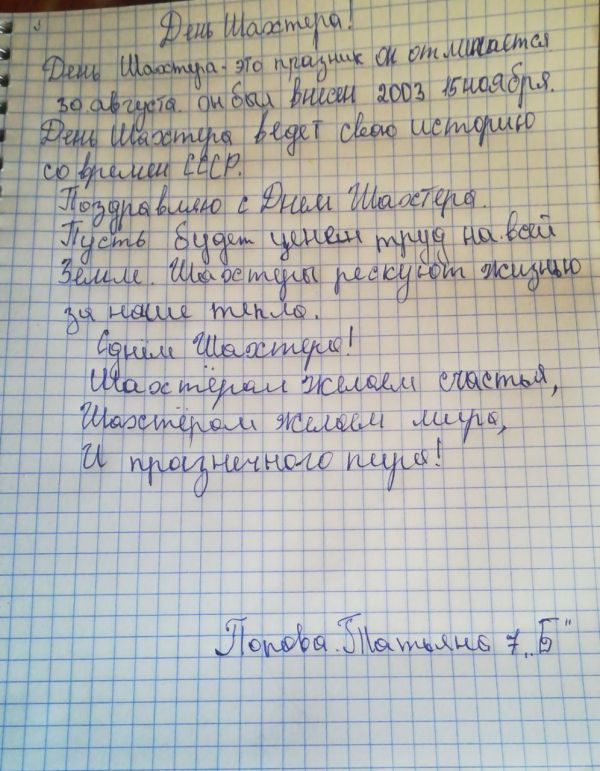 День Шахтера!
День Шахтера - это празник он отмичается
30 августа. он был внесен 2003 15 ноября.
День Шахтера ведет свою историю
со времен СССР.
Поздравляю с Днем Шахтера.
Пусть будет ценен труд на всей
Земле. Шахтеры рескуют жизнью
за наше тепло.
С днём Шахтера!
Шахтёрам желаем счастья,
Шахтёрам желаем мира,
И празнечного пира!
Попова. Татьяна 7 „Б"